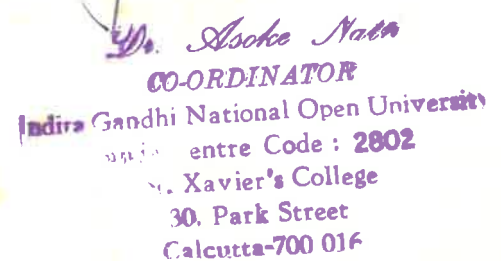 Dr. Asoke Nath
CO-ORDINATOR
Indira Gandhi National Open University
entre Code : 2802
. Xavier's College
30, Park Street
Calcutta-700 016